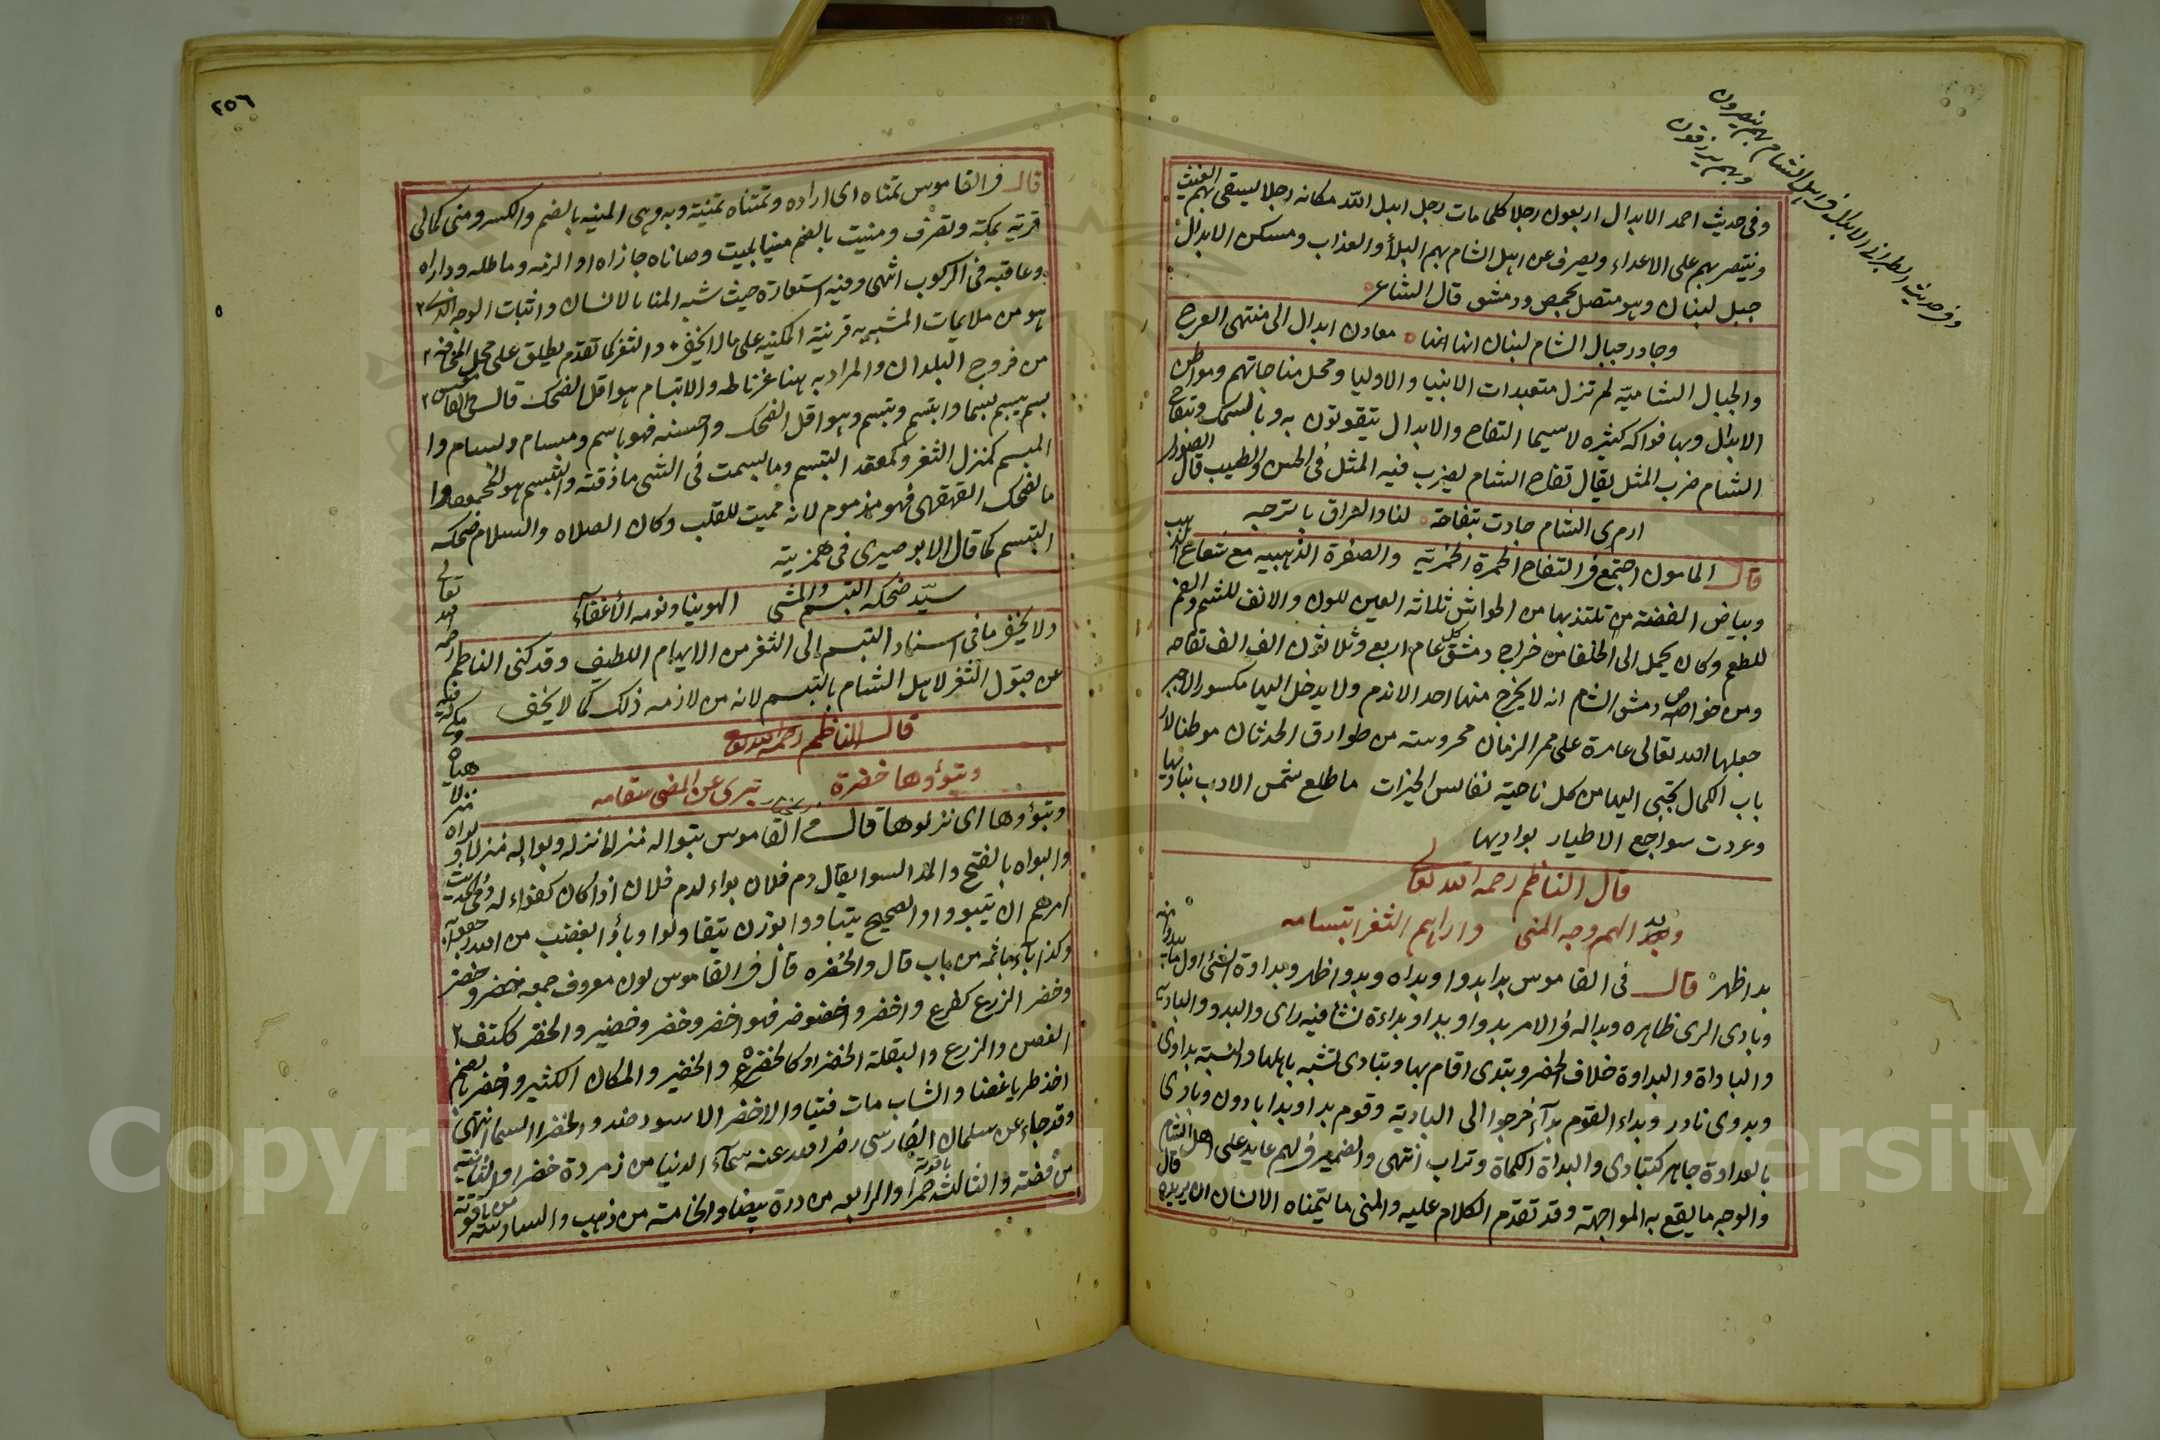 وفي حديث الطبراني الابدال في اهل الشام بهم ينصرون
وبهم يرزقون
وفي حديث احمد الابدال اربعون رجلا كلما مات رجل ابدل الله مكانه رجلا يسقى بهم الغيث
وينتصر بهم على الاعداء ويصرف عن اهل الشام بهم البلأ والعذاب ومسكن الابدال
جبل لبنان وهو متصل بحمص ودمشق قال الشاعر
وجاور جبال الشام لبنان انها معادن ابدال الى منتهى العرج
والجبال الشاميّة لم تزل متعبدات الانبيا والاوليا ومحل مناجاتهم ومواطن
الابدال وبها فواكه كثيره لاسيما التفاح والابدال يتقوتون به وبالسمك وتفاح
الشام ضرب المثل يقال تفاح الشام يضرب فيه المثل في الحسن والطيب قال الصنوبري
ارم ى الشام جادت بتفاحة لنا والعراق باترجه
قال المامون اجتمع في التفاح الحمرة الخمريّة والصفرة الذهبيه مع شعاع الذهب
وبياض الفضة من تلتذ بها من الحواس ثلاثه العين للون والانف للشم والفم
للطعم وكان يحمل الى الخلفا من خراج دمشق كل عام اربع وثلاثون الف الف تفاحه
ومن خواص دمشق الشام انه لا يخرج منها احد الا ندم ولا يدخل اليها مكسور الا جبر
جعلها الله تعالى عامرة على ممر الزمان محروسته من طوارق الحدثان موطنا لار
باب الكمال تجبى اليها من كل ناحية نفايس الخيرات ما طلع شمس الادب بناديها
وغردت سواجع الاطيار بواديها
قال الناظم رحمه الله تعالى
وبدا لهم وجه المنى واراهم الثغر ابتسامه
بدا ظهر قال في القاموس بدا بدوا وبداه وبدوا ظهر وبداوة الشئ اول ما يبدو منه
وبادى الرى ظاهره وبدا له في الامر بدوا وبدا وبداءة نشا فيه راى والبدو والبادية
والباداة والبداوة خلاف الحضر وتبدى اقام بها وتبادى تشبه باهلها والنسبة بداوى
وبدوى نادر وبداء القوم بدآء خرجوا الى البادية وقوم بدا وبدا بادون وبادى
بالعداوة جاهر كتبادى والبداة الكماة وتراب انتهى والضمير في لهم عايد على اهل الشام
والوجه ما يقع به المواجهة وقد تقدم الكلام عليه والمنى ما يتمناه الانسان اى يريده قال
٢٥٦
قال في القاموس تمناه اى اراده وتمناه تمنية وبه وهى المنيه بالضم والكسر ومنى كمالى
قرية بمكة وتصرف ومنيت بالضم منيا بليت وماناه جازاه او الزمه وماطله وداراه
وعاقبه في الركوب انتهى وفيه استعارة حيث شبه المنا بالانسان واثبات الوجه الذى
هو من ملايمات المشبه به قرينة المكنيه على مالا يخفى والثغر كما تقدم يطلق على محل المخافه
من فروج البلدان والمراد به هنا غرناطه والابتسام هو اقل الضحك قال في القاموس
بسم يبسم بسما وابتسم وتبسم وهو اقل الضحك واحسنه فهو باسم ومبسام وبسام وا
المبسم كمنزل الثغر وكمقعد التبسم وما بسمت في الشى ما ذقته والتبسم هو المحمود وا
ما لضحك القهقهى فهو مذموم لانه مميت للقلب وكان الصلاه والسلام ضحكه
التبسم كما قال الابوصيرى في همزيته
سيّد ضحكه التبسم والمشى الهوينا ونومه الأغفآء
ولا يخفى ما في اسناد التبسم إلى الثغر من الايهام اللطيف وقد كنى الناظم رحمه الله تعالى
عن قبول الثغر لاهل الشام بالتبسم لانه من لازمه ذلك كما لا يخفى
قال الناظم رحمه الله تعالى
وتبوؤوها خضرة تبرى عن المضنى سقامه
وتبوؤوها اى نزلوها قال في القاموس بتوا له منزلا نزله وبوا له منزلا وبواه منزلا هياه ومكن له فيه
والبواه بالفتح والمد السوا يقال دم فلان بواء لدم فلان اذا كان كفواء له وفي الحديث
امرهم ان يتبووا والصحيح يتباووا بوزن يتقاولوا وبأؤا بغضب من الله رجعوا به
وكذا بآء باثمه من باب قال والخضره قال في القاموس لون معروف جمعه خضر وخضر
وخضر الزرع كطرع واخضر واخضوضر فهو اخضر وخضر وخضير والخضر ككتف
الغصن والزرع والبقلة الخضرا وكالخضرة والخضير والمكان الكثير واختضر بالضم
اخذ طريا غضا والشاب مات فتيا والاخضر الاسود ضد والخضرا السما انتهى
وقد جاء عن سلمان الفارسى رضى الله عنه سمآء الدنيا من زمردة خضرا والثانية
من فضه والثالثه من ياقوتة حمرا والرابعه من درة بيضا والخامسة من ذهب والسادسه من ياقوتة